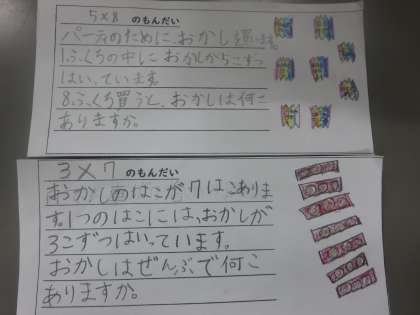 5×8 のもんだい
パーティのために、おかしを買います。
1ふくろの中に おかしが5こずつ
はいっています。
8ふくろ買うと、おかしは何こ
ありますか。
3×7 のもんだい
おかしのはこが7はこありま
す。1つのはこには、おかしが
3こずつはいっています。
おかしはぜんぶで何こ
ありますか。